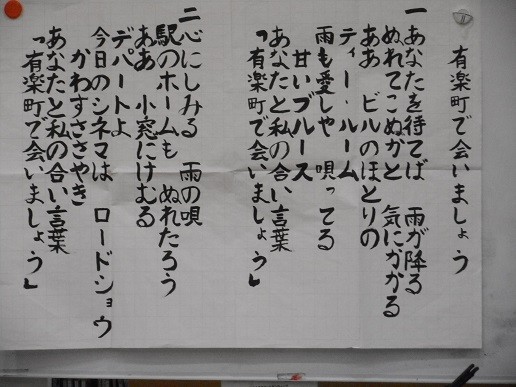 有楽町で会いましょう
一あなたを待てば 雨が降る
ぬれてこぬかと 気にかかる
ああ ビルのほとりの
ティー・ルーム
雨も愛しや 唄ってる
甘いブルース
あなたと私の合い言葉
「有楽町で会いましょう」
二心にしみる 雨の唄
駅のホームも ぬれたろう
ああ 小窓にけむる
デパートよ
今日のシネマは ロードショウ
かわすささやき
あなたと私の合い言葉
「有楽町で会いましょう」